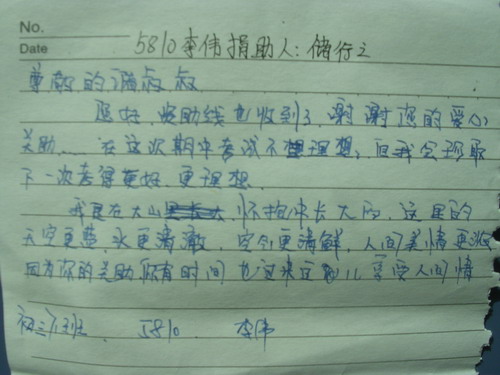 No.
Date
5810李伟捐助人:储行之
尊敬的储叔叔
您好,资助钱已收到了,谢谢您的爱心
关助。在这次期中考试不理想,但我会争取
下一次考得更好,更理想。
我是在大山怀抱中长大的,这里的
天空更蓝,水更清澈,空气更清鲜,人间美情更浓
因为你的关助你有时间也过来这儿享受人间情
初三班 5810 李伟